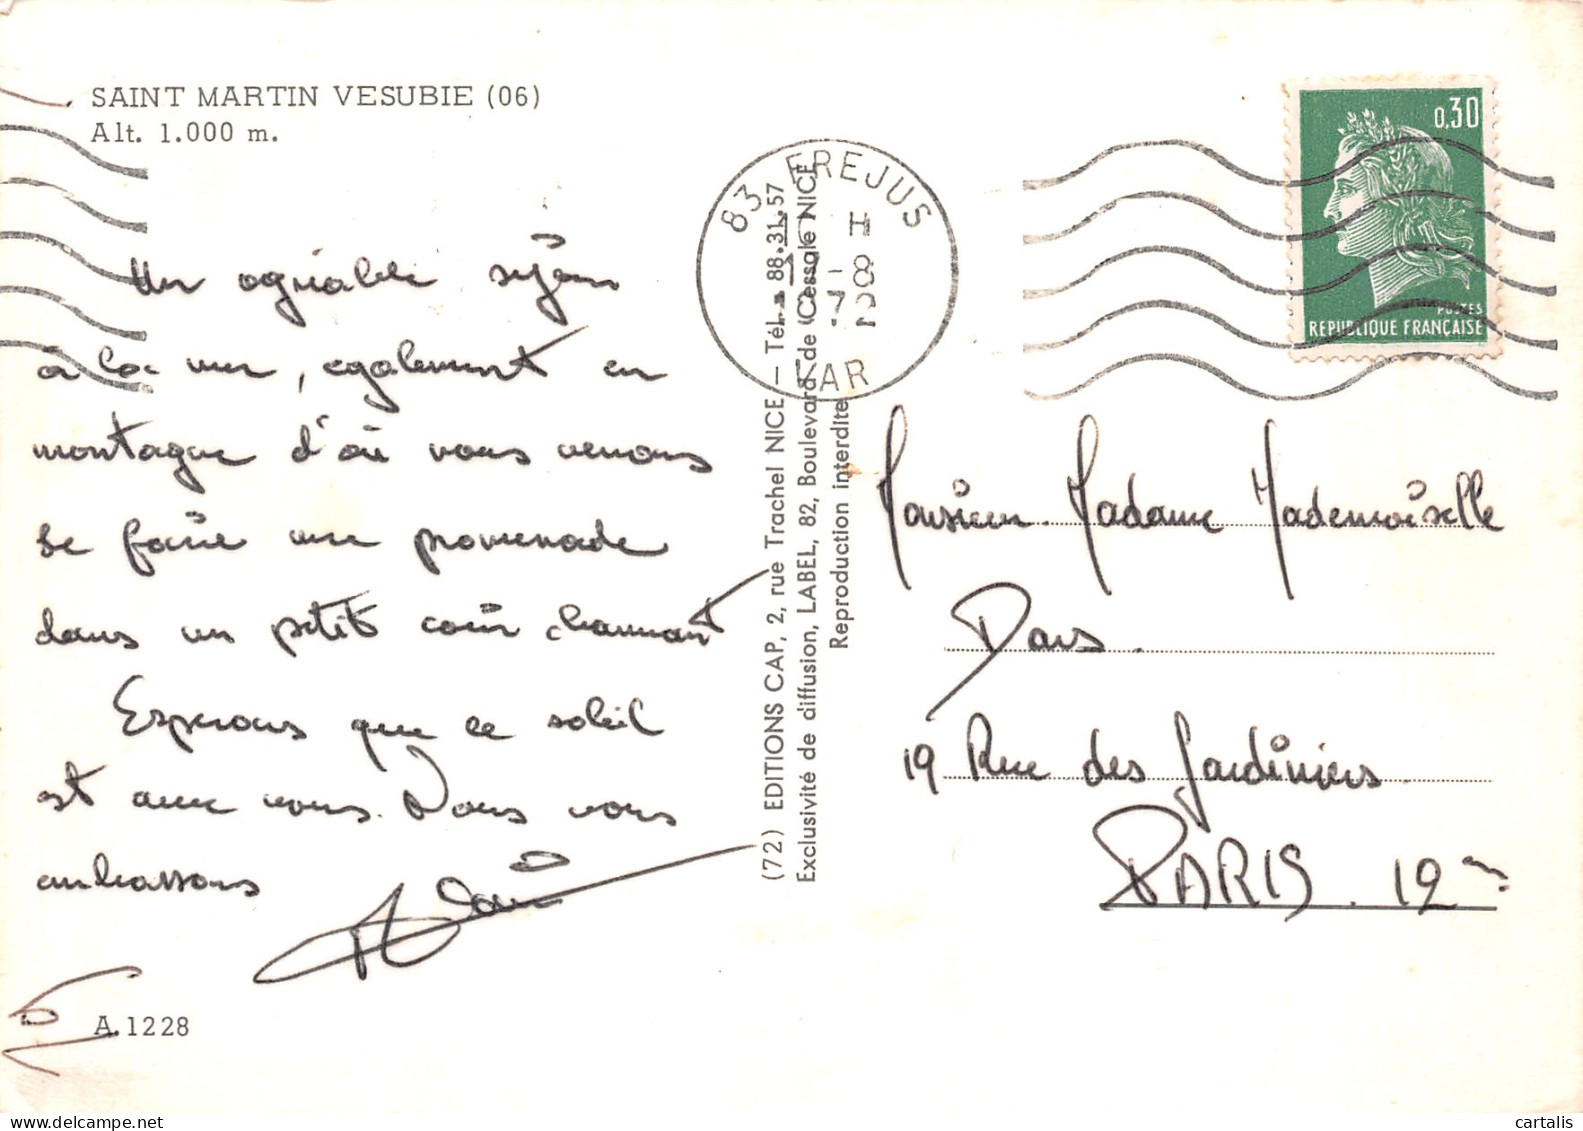 SAINT MARTIN VESUBIE (06)
Alt. 1.000 m.
Un agréable séjour
à la mer, également en
montagne d'où nous venons
de faire une promenade
dans un petit coin charmant
Espérons que ce soleil
est avec vous. Nous vous
embrassons
Alain
A.1228
(72) EDITIONS CAP, 2, rue Trachel NICE — Tél. 88.31.57
Exclusivité de diffusion, LABEL, 82, Boulevard de Cessole NICE
Reproduction interdite
83 FREJUS
H
-8
1972
VAR
0,30
POSTES
REPUBLIQUE FRANÇAISE
Monsieur Madame Mademoiselle
19 Rue des Jardiniers
PARIS. 12
cartalis